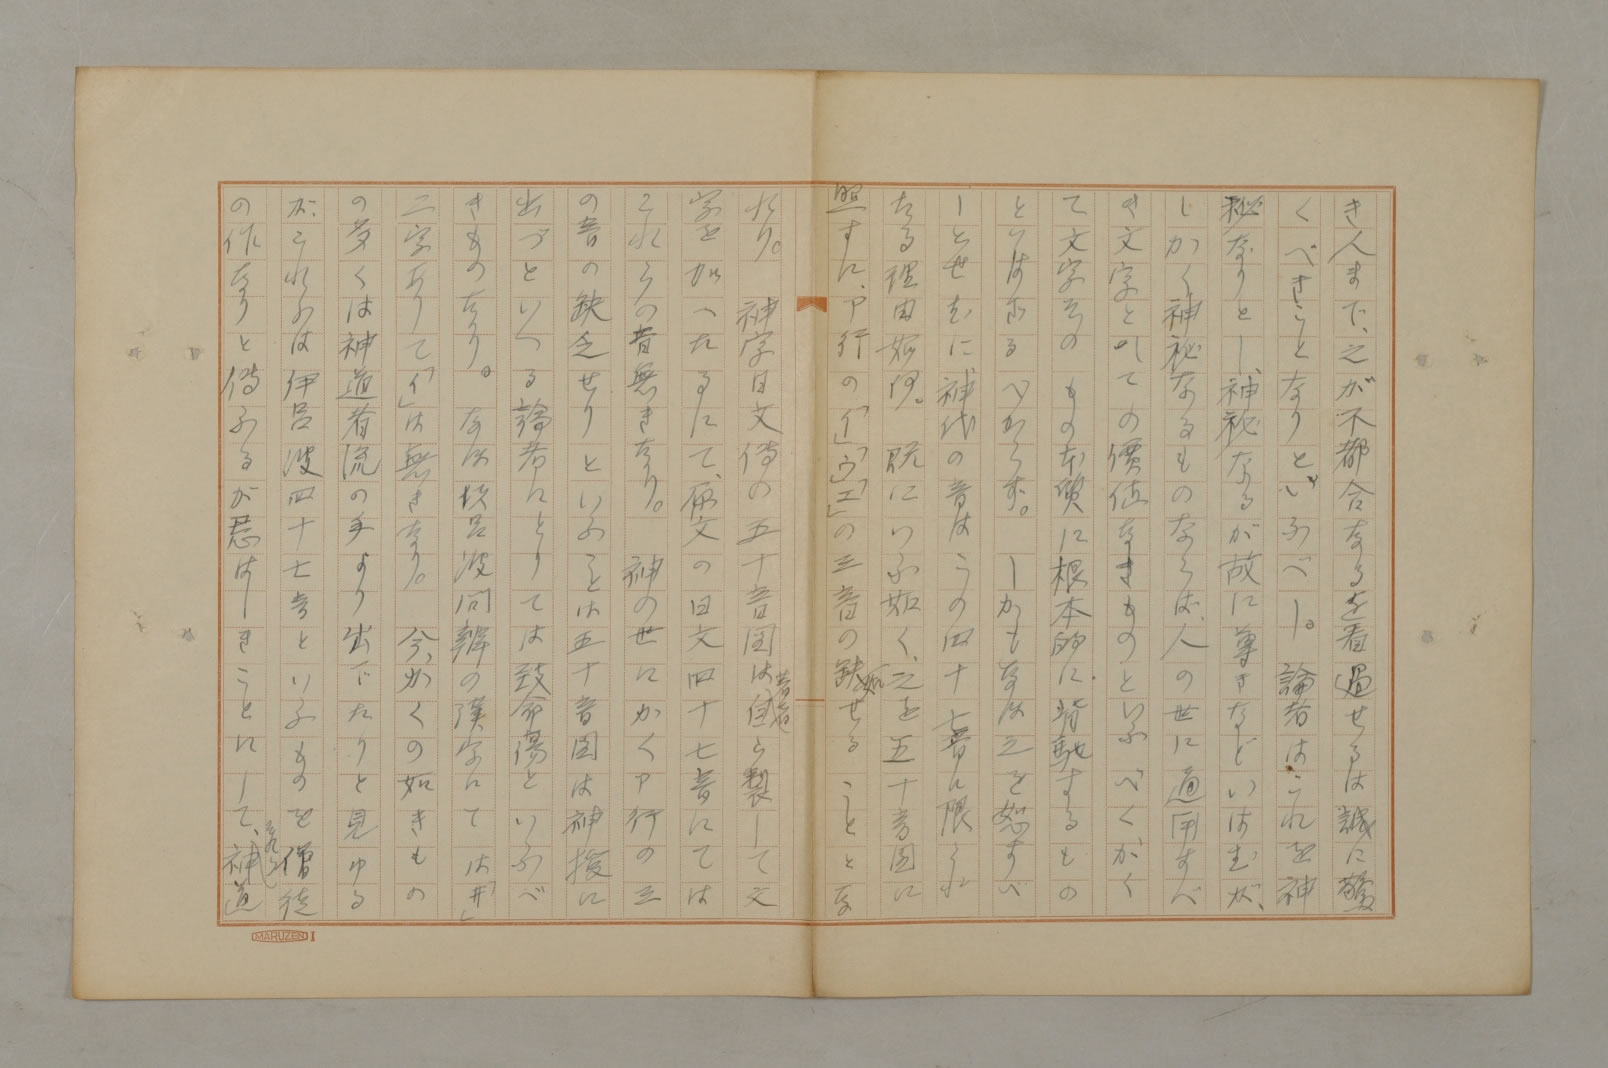 き人まで、之が不都合なるを看過せるは誠に驚
くべきことなりといふべし。論者はこれを神
秘なりとし、神秘なるが故に尊きなどいはむが、
しかく神秘なるものならば、人の世に通用すべ
き文字としての價値なきものといふべく、かく
て文字そのもの本質に根本的に背馳するもの
といはざるべからず。しかもなほ之を恕すべ
しとせむに、神代の音はこの四十七音に限られ
たる理由如何。既にいふ如く、之を五十音図に
照すに、ア行の「イ」「ウ」「エ」の三音の缺如せることとな
れり。神字日文傳の五十音図は著者自ら製して文
字を加へたるにて、原文の日文四十七音にては
これらの音無きなり。神の世にかくア行の三
の音の缺乏せりといふことは五十音図は神授に
出づといへる論者にとりては致命傷といふべ
きものなり。なほ伊呂波問辨の漢字にては「井」
二字ありて「イ」は無きなり。今、かくの如きもの
の多くは神道者流の手より出でたりと見ゆる
が、これらは伊呂波四十七音といふものを僧徒
の作なりと傳ふるが忌はしきことにして、神道
MARUZEN I